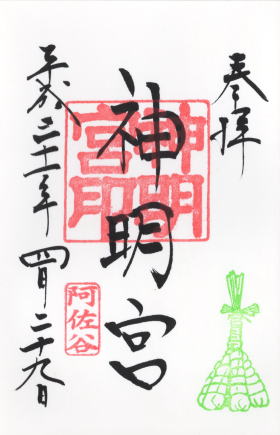 奉拝
神明宮
神明宮印
阿佐谷
平成三十一年四月二十九日